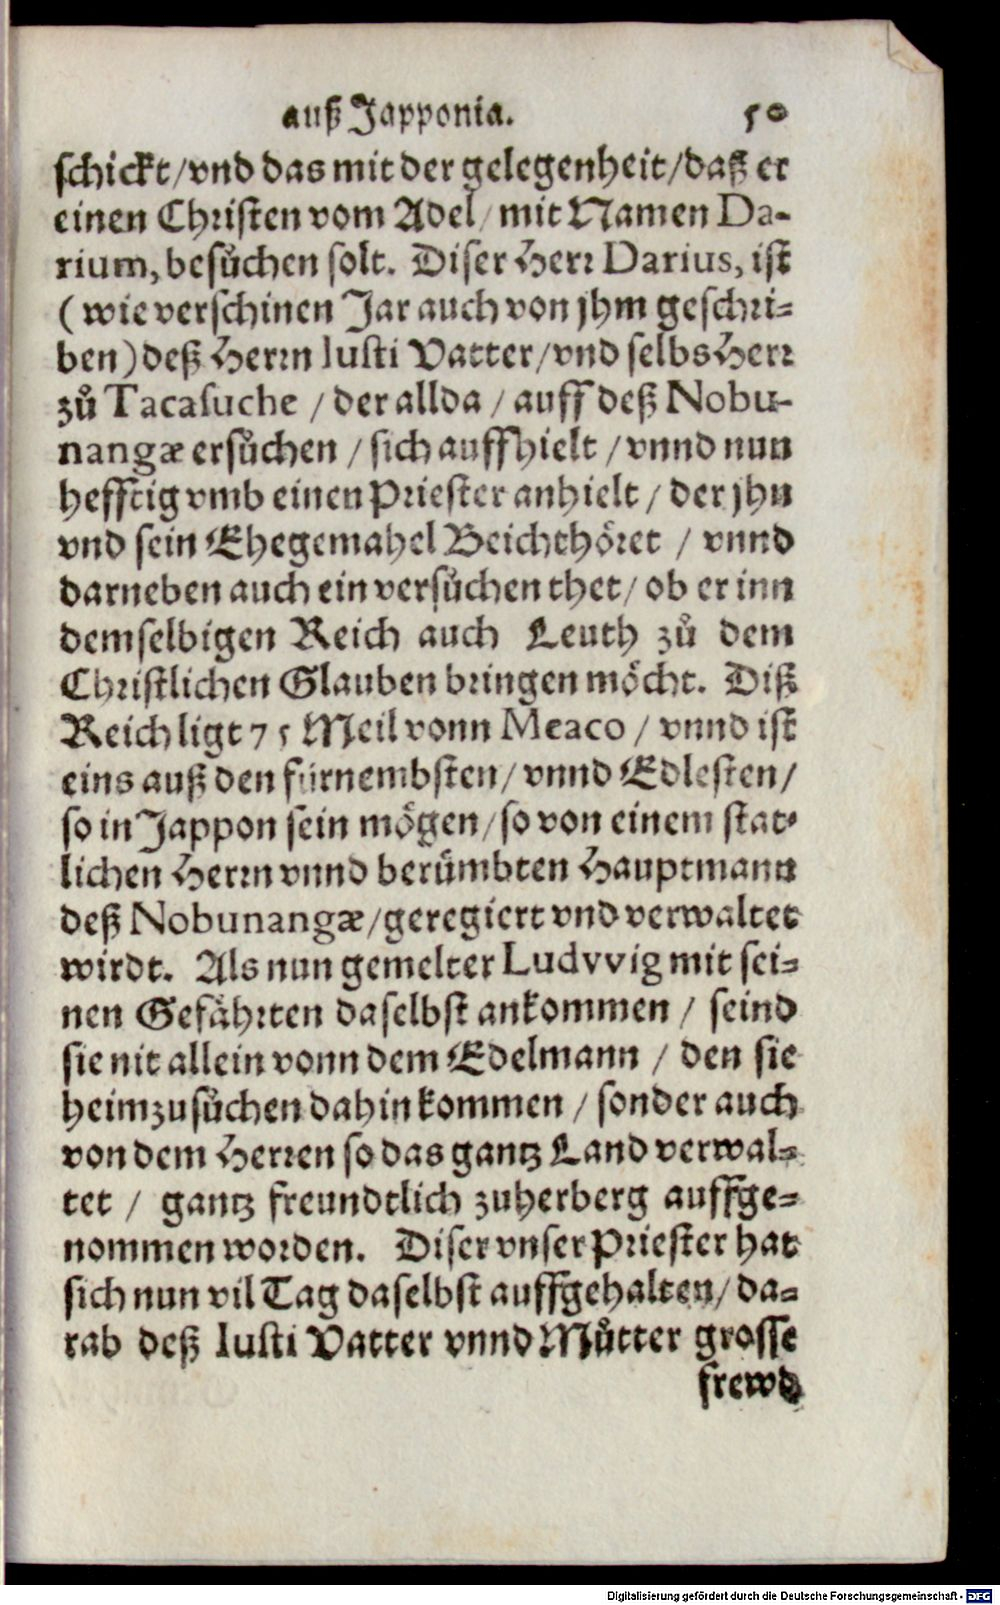 auß Japponia. 50
schickt/vnd das mit der gelegenheit/daß er
einen Christen vom Adel/mit Namen Da-
rium, besůchen solt. Diser Herr Darius, ist
(wie verschinen Jar auch von jhm geschri-
ben) deß Herrn Iusti Vatter/vnd selbs Herr
zů Tacasuche / der allda / auff deß Nobu-
nangæ ersůchen / sich auffhielt / vnnd nun
hefftig vmb einen Priester anhielt / der jhn
vnd sein Ehegemahel Beichthöret / vnnd
darneben auch ein versůchen thet/ ob er inn
demselbigen Reich auch Leuth zů dem
Christlichen Glauben bringen möcht. Diß
Reich ligt 75 Meil vonn Meaco / vnnd ist
eins auß den fürnembsten/ vnnd Edlesten/
so in Jappon sein mögen/so von einem stat-
lichen Herrn vnnd berümbten Hauptmann
deß Nobunangæ/geregiert vnd verwaltet
wirdt. Als nun gemelter Ludvvig mit sei-
nen Gefährten daselbst ankommen / seind
sie nit allein vonn dem Edelmann / den sie
heimzusůchen dahin kommen / sonder auch
von dem Herren so das gantz Land verwal-
tet / gantz freundtlich zuherberg auffge-
nommen worden. Diser vnser Priester hat
sich nun vil Tag daselbst auffgehalten/ da-
rab deß Iusti Vatter vnnd Můtter grosse
frewd
Digitalisierung gefördert durch die Deutsche Forschungsgemeinschaft - DFG